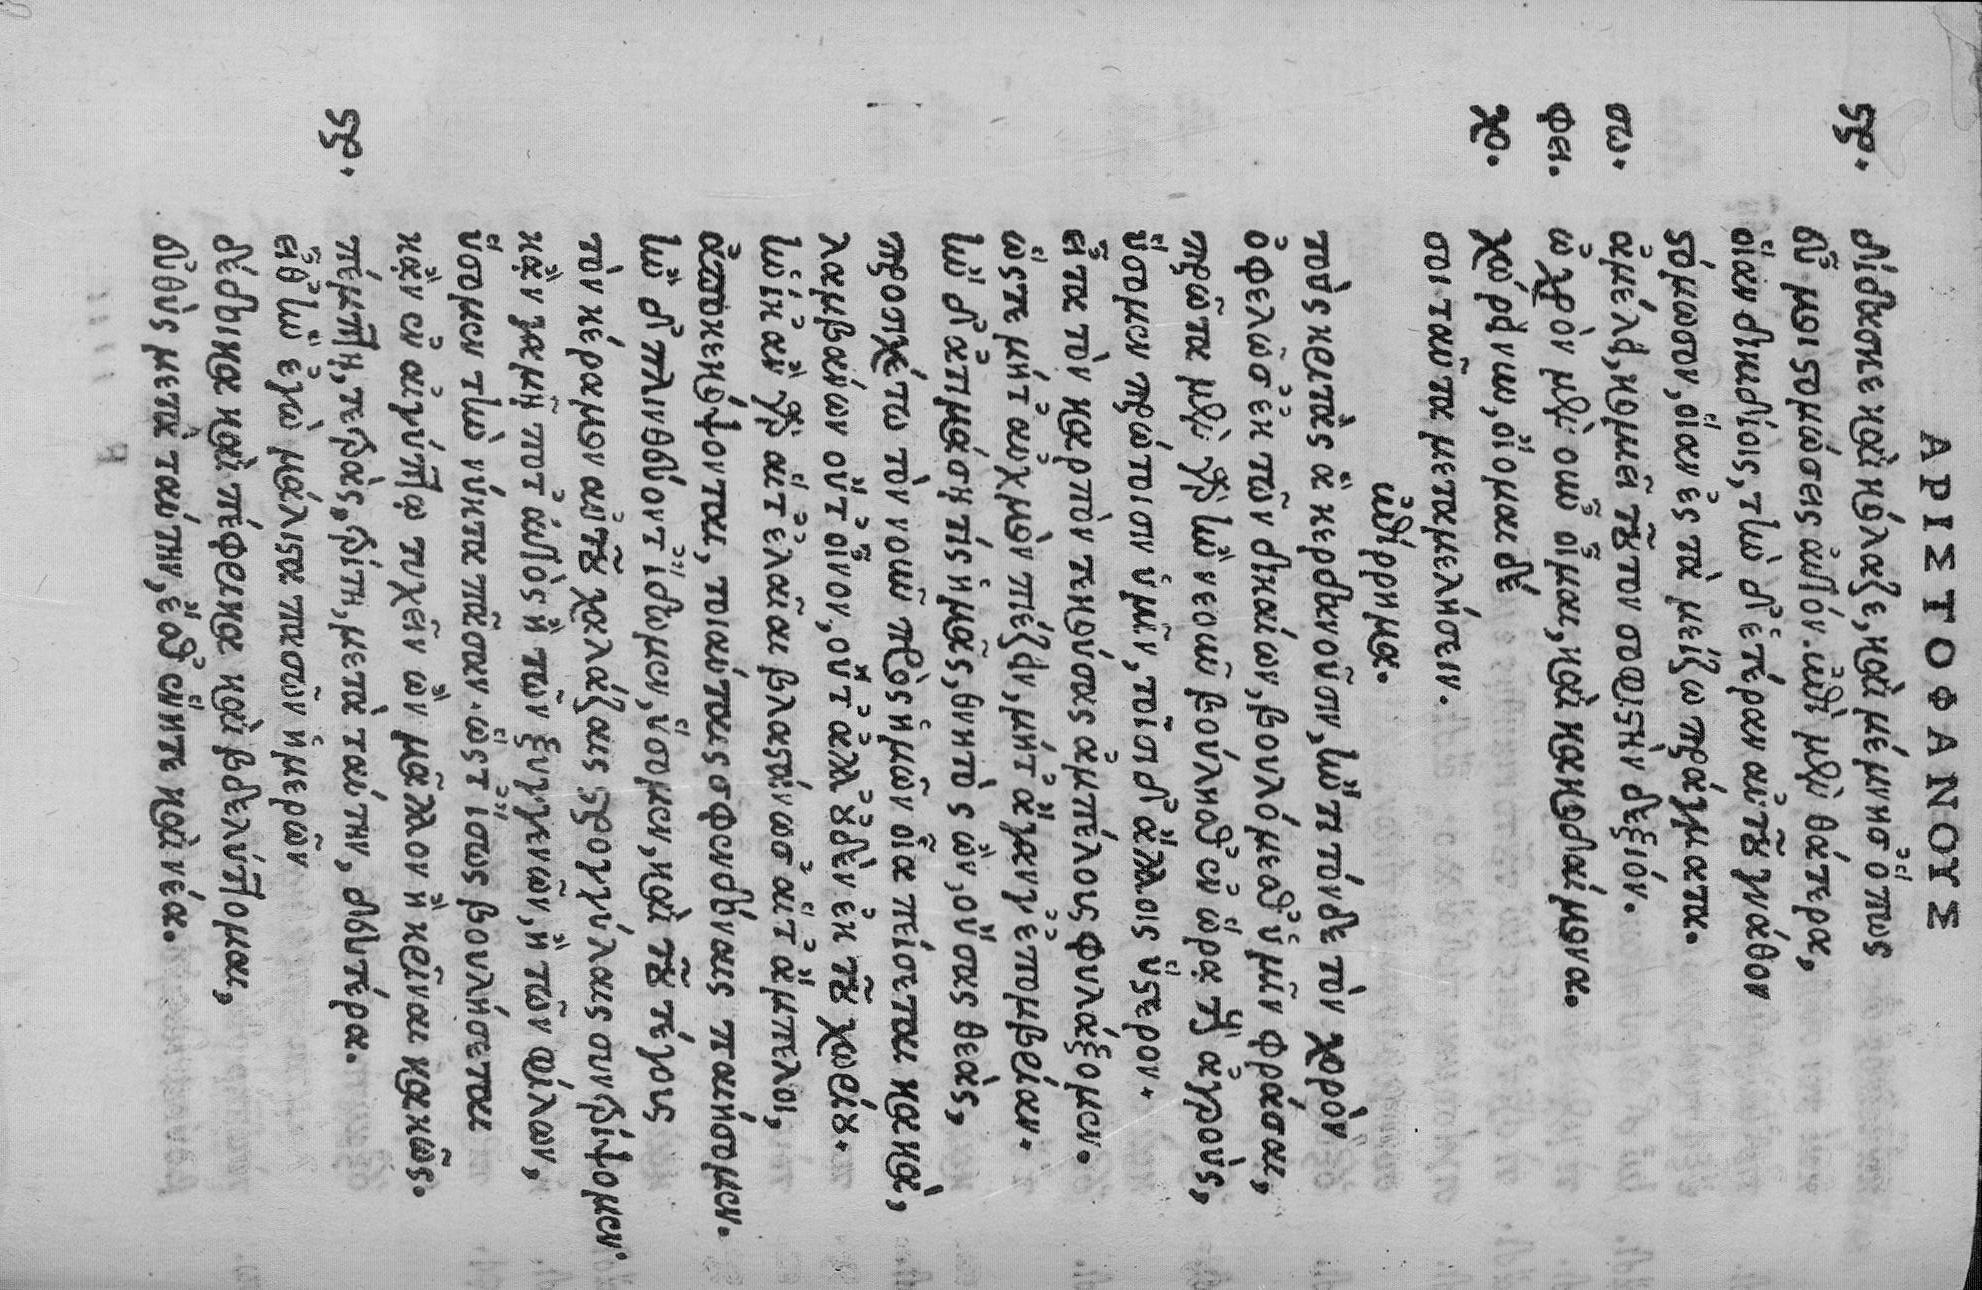 ΑΡΙΣΤΟΦΑΝΟΥΣ
ςρ. δίδασκε καὶ κόλαζε, καὶ μέμνησ' ὅπως
εὖ μοι στομώσεις αὐτόν. ἐπὶ μὲν θάτερα,
οἵαν δικιδίοις, τὴν δ' ἑτέραν αὐτοῦ γνάθον
στόμωσον, οἵαν ἐς τὰ μείζω πράγματα.
σω. ἀμέλει, κομιεῖ τοῦτον σοφιστὴν δεξιόν.
φει. ὠχρὸν μὲν οὖν οἶμαι, καὶ κακοδαίμονα.
χο. χώρει νυν, οἴομαι δέ
σοι ταῦτα μεταμελήσειν.
ἐπίρρημα.
τοὺς κριτὰς ἃ κερδανοῦσιν, ἢν τι τόνδε τὸν χορὸν
ὀφελῶσ' ἐκ τῶν δικαίων, βουλόμεσθ' ὑμῖν φράσαι,
πρῶτα μὲν γὰρ ἢν νεοῦν βούλησθ' ἐν ὥρα τοὺς ἀγρούς,
ὕσομεν πρώτοισιν ὑμῖν, τοῖσι δ' ἄλλοις ὕστερον.
εἶτα τὸν καρπὸν τεκούσας ἀμπέλους φυλάξομεν.
ὥστε μήτ' αὐχμὸν πιέζειν, μήτ' ἄγαν ἐπομβρίαν.
ἢν δ' ἀτιμάση τὶς ἡμᾶς, θνητὸς ὢν, οὔσας θεάς,
προσεχέτω τὸν νοῦν πρὸς ἡμῶν οἷα πείσεται κακά,
λαμβάνων οὔτ' οἶνον, οὔτ' ἄλλ' οὐδὲν ἐκ τοῦ χωρίου.
ἡνίκ' ἂν γὰρ αἵτ' ἐλᾶαι βλαστάνωσ' αἵτ' ἄμπελοι,
ἀποκεκόψονται, τοιαύταις σφενδόναις παιήσομεν.
ἢν δὲ πλινθεύοντ' ἴδωμεν, ὕσομεν, καὶ τοῦ τέγους
τὸν κέραμον αὐτοῦ χαλάζαις στρογγύλαις συντρίψομεν.
κἂν γαμῆ ποτ' αὐτὸς ἢ τῶν ξυγγενῶν, ἢ τῶν φίλων,
ὕσομεν τὴν νύκτα πᾶσαν. ὥστ' ἴσως βουλήσεται
κἂν ἐν αἰγύπτῳ τυχεῖν ὢν μᾶλλον ἢ κρῖναι κακῶς.
ςρ. πέμπτη, τετράς, τρίτη, μετὰ ταύτην, δευτέρα.
εἶθ' ἣν ἐγὼ μάλιστα πασῶν ἡμερῶν
δέδοικα καὶ πέφρικα καὶ βδελύττομαι,
εὐθὺς μετὰ ταύτην, ἔσθ' ἕνητε καὶ νέα.